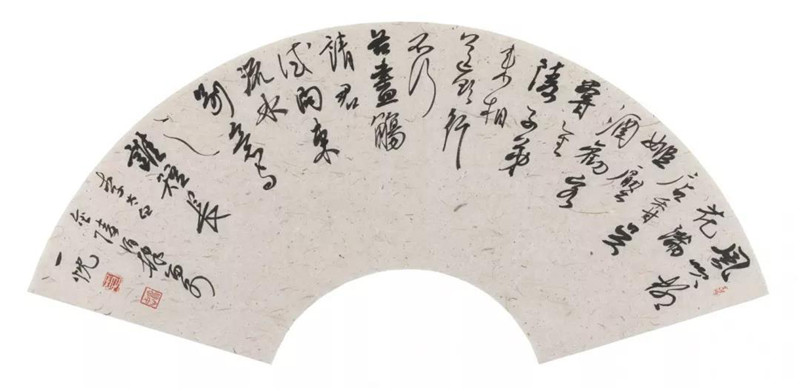 風吹柳
花滿
店香吳
姬壓
酒勸客
嘗金
陵子弟
來相
送欲行
不行
各盡觴
請君
試問東
流水
別意与
之
誰短長
李太白
金陵
一忱